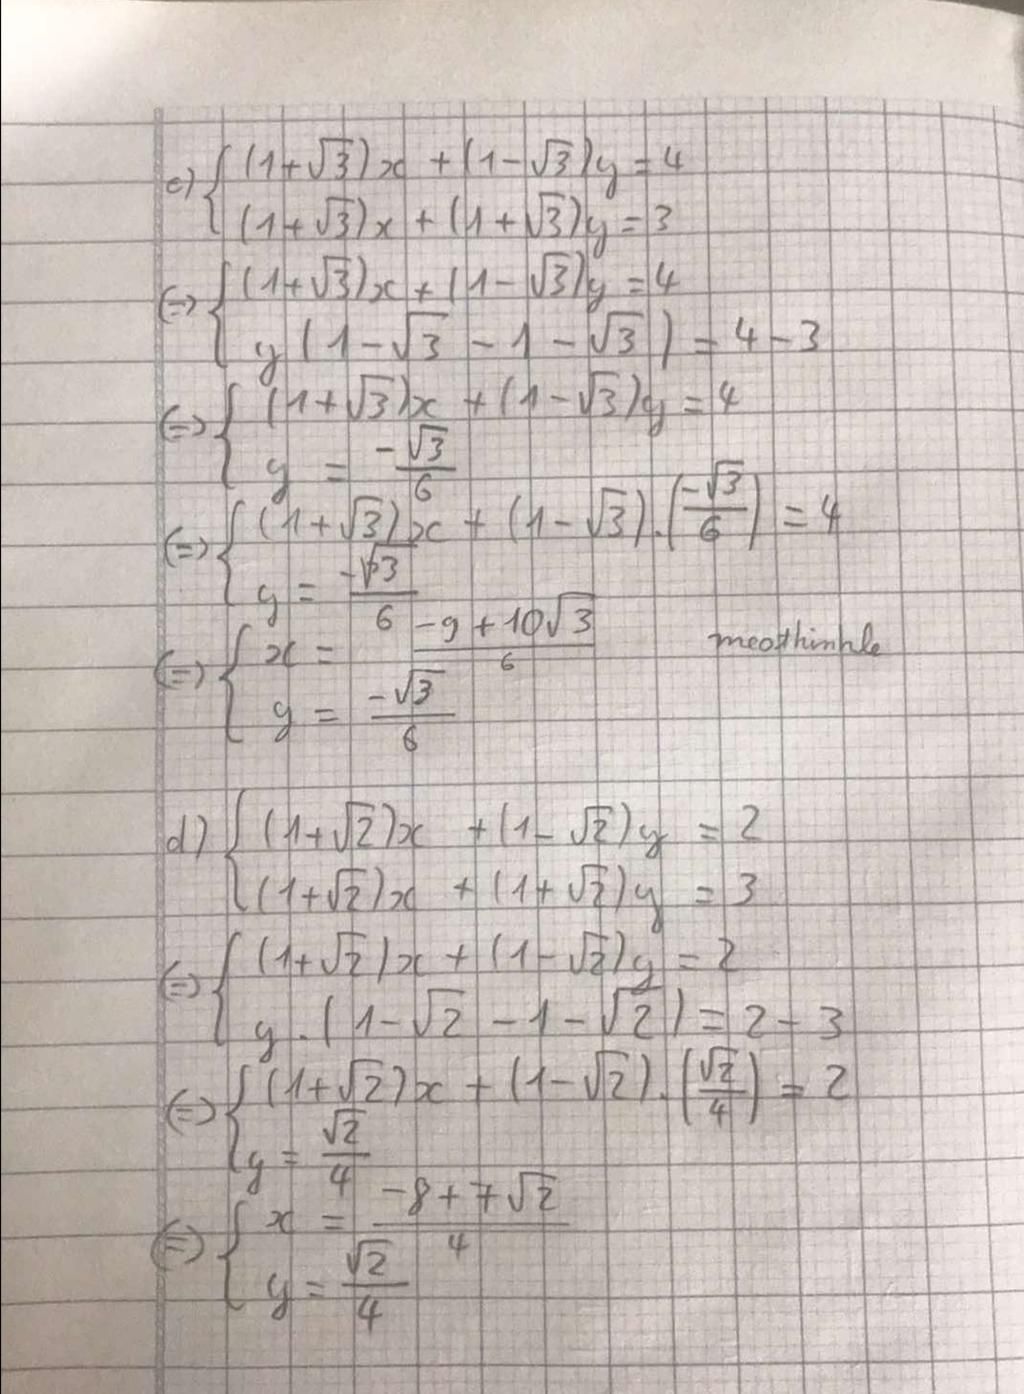 c) { (1+√3)x + (1-√3)y = 4
(1+√3)x + (1+√3)y = 3
(=) { (1+√3)x + (1-√3)y = 4
y (1-√3 - 1 - √3) = 4-3
(=) { (1+√3)x + (1-√3)y = 4
y = -√3/6
(=) { (1+√3)x + (1-√3).(-√3/6) = 4
y = -√3/6
(=) { x = -9+10√3/6
meothinhle
y = -√3/6
d) { (1+√2)x + (1-√2)y = 2
(1+√2)x + (1+√2)y = 3
(=) { (1+√2)x + (1-√2)y = 2
y.(1-√2 - 1 - √2) = 2-3
(=) { (1+√2)x + (1-√2).(√2/4) = 2
y = √2/4
(=) { x = -8+7√2/4
y = √2/4